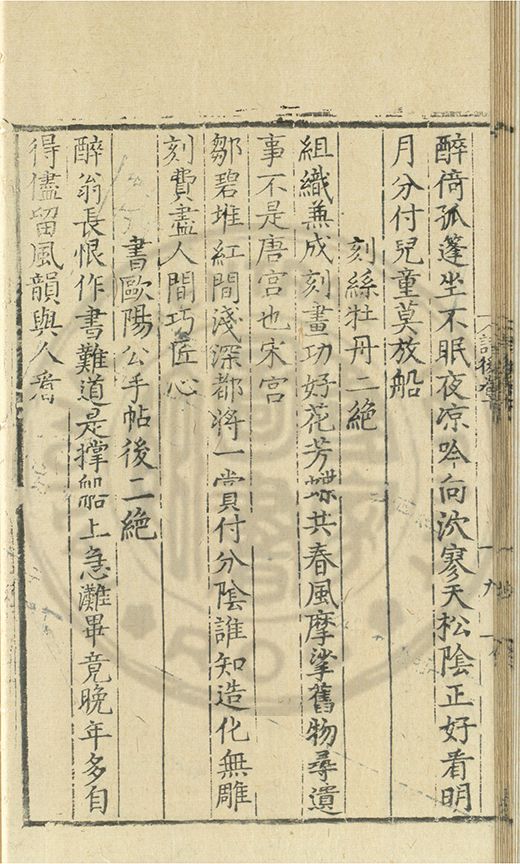 醉倚孤蓬坐不眠夜凉吟向泬寥天松陰正好看明
月分付兒童莫放船
刻絲牡丹二絶
組織兼成刻畫功好花芳蝶共春風摩挲舊物尋遺
事不是唐宮也宋宮
鄒碧堆紅間淺深都將一賞付分陰誰知造化無雕
刻費盡人間巧匠心
書歐陽公手帖後二絶
醉翁長恨作書難道是撑船上急灘畢竟晚年多自
得儘留風韻與人看